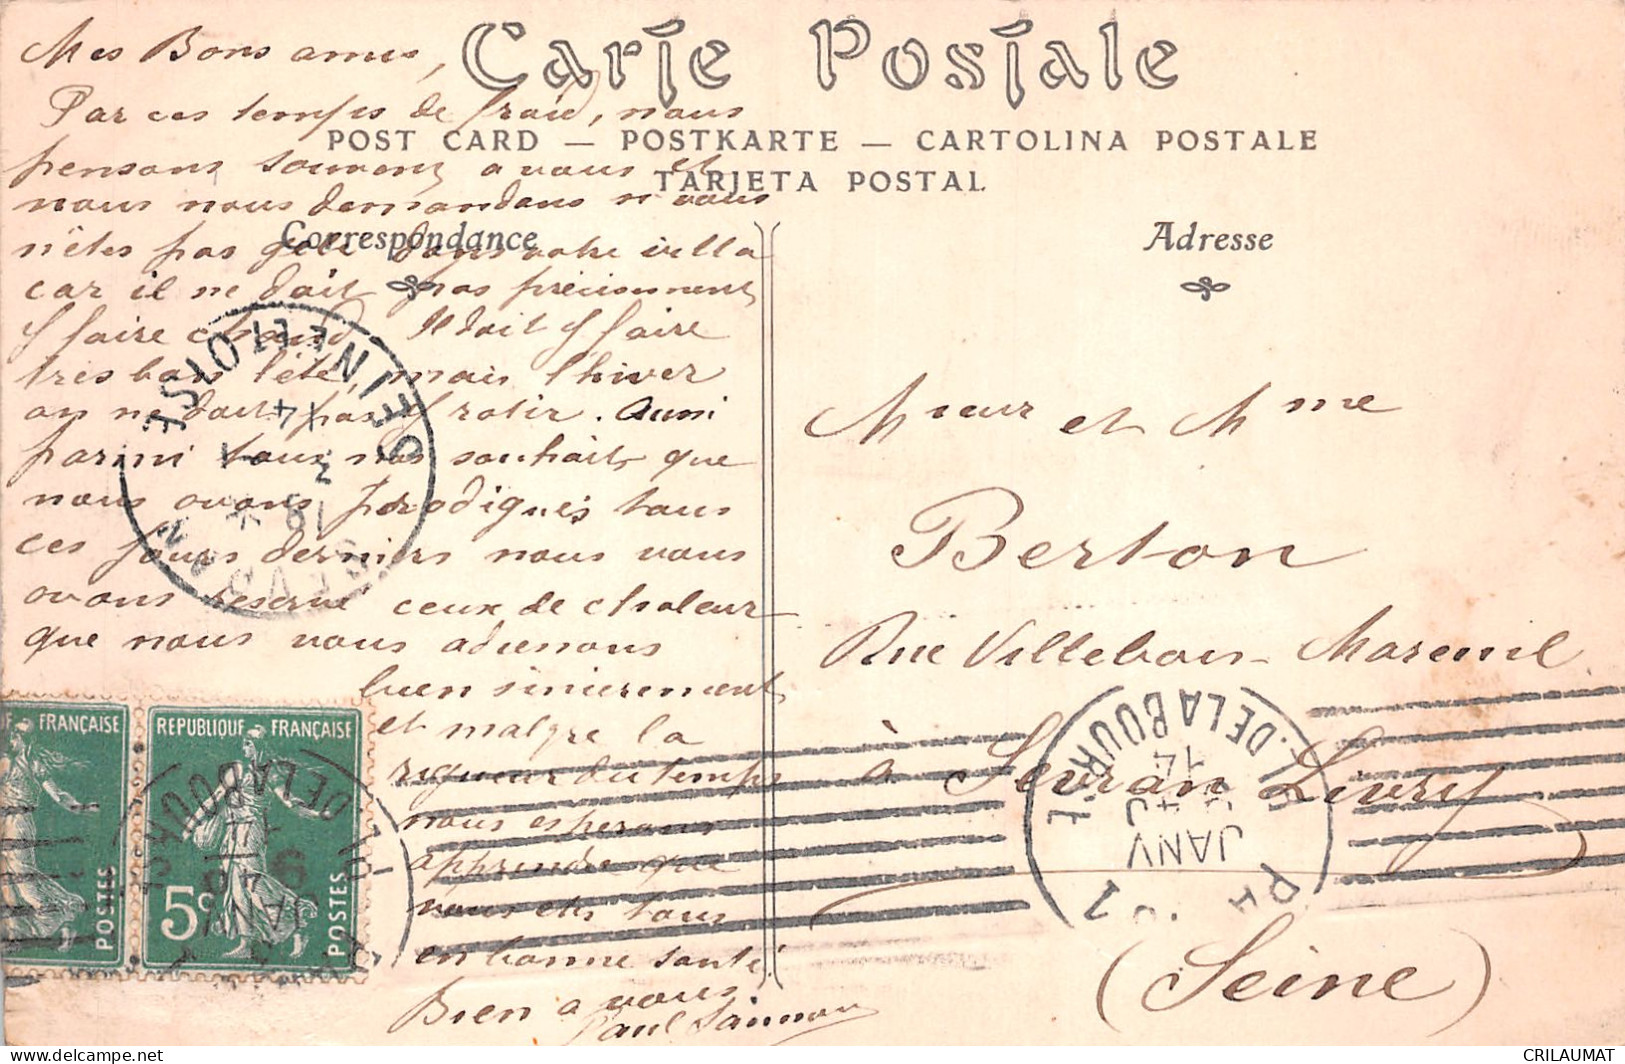 Carte Postale
POST CARD — POSTKARTE — CARTOLINA POSTALE
TARJETA POSTAL
Correspondance
Adresse
Mes Bons amis,
Par ces temps de froid, nous
pensons souvent a vous et
nous nous demandons si vous
n'êtes pas gelé dans votre villa
car il ne doit pas précisement
y faire chaud Il doit y faire
tres bon l'été, mais l'hiver
on ne doit pas y rotir. Aussi
parmi tous nos souhaits que
nous avons prodigués tous
ces jours derniers nous vous
avons réservé ceux de chaleur
que nous vous adressons
bien sincerement
et malgre la
rigueur du temps
nous esperons
apprendre que
vous etes tous
en bonne santé
Bien a vous
Paul
Mieur et Mme
Berton
Rue Villebois-Mareuil
à Sevran Livry
(Seine)
SEINE ET OISE
SEVRAN
REPUBLIQUE FRANÇAISE
5c
POSTES
FRANÇAISE
POSTES
R. DE LA BOURSE
JANV
DE LA BOURSE
JANV
CRILAUMAT